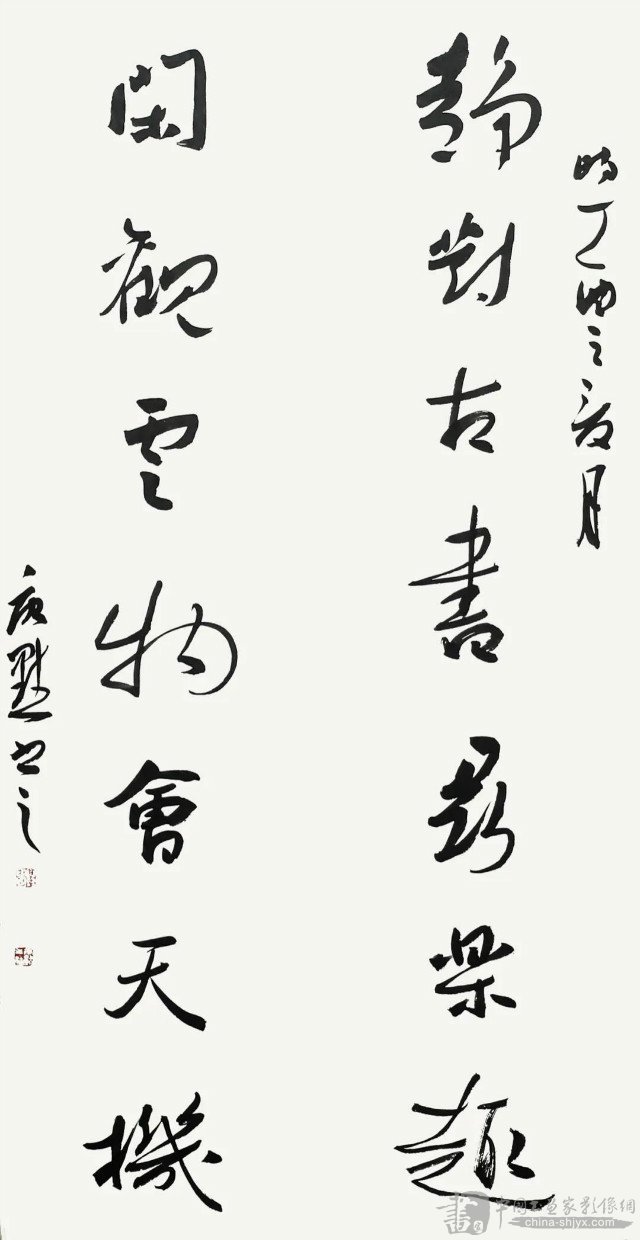 時丁酉之夏月
靜對古書尋樂趣
閑觀雲物會天機
默書之
中國书画家影像網
china-shjyx.com